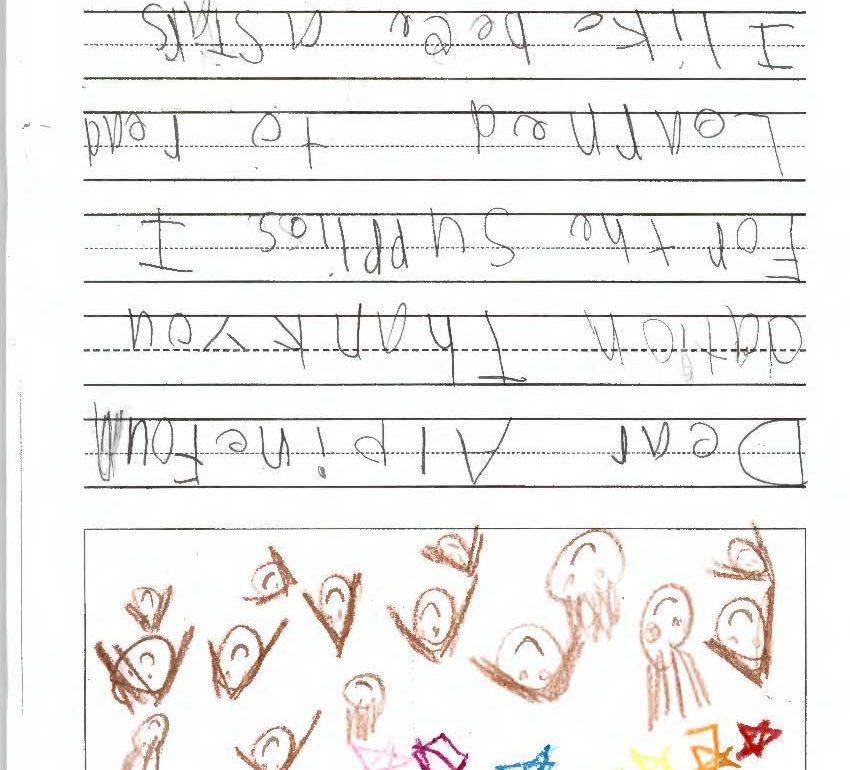 Dear AlpineFoun
dation Thank you
For the Supplies I
Learned to read
I like a STARS